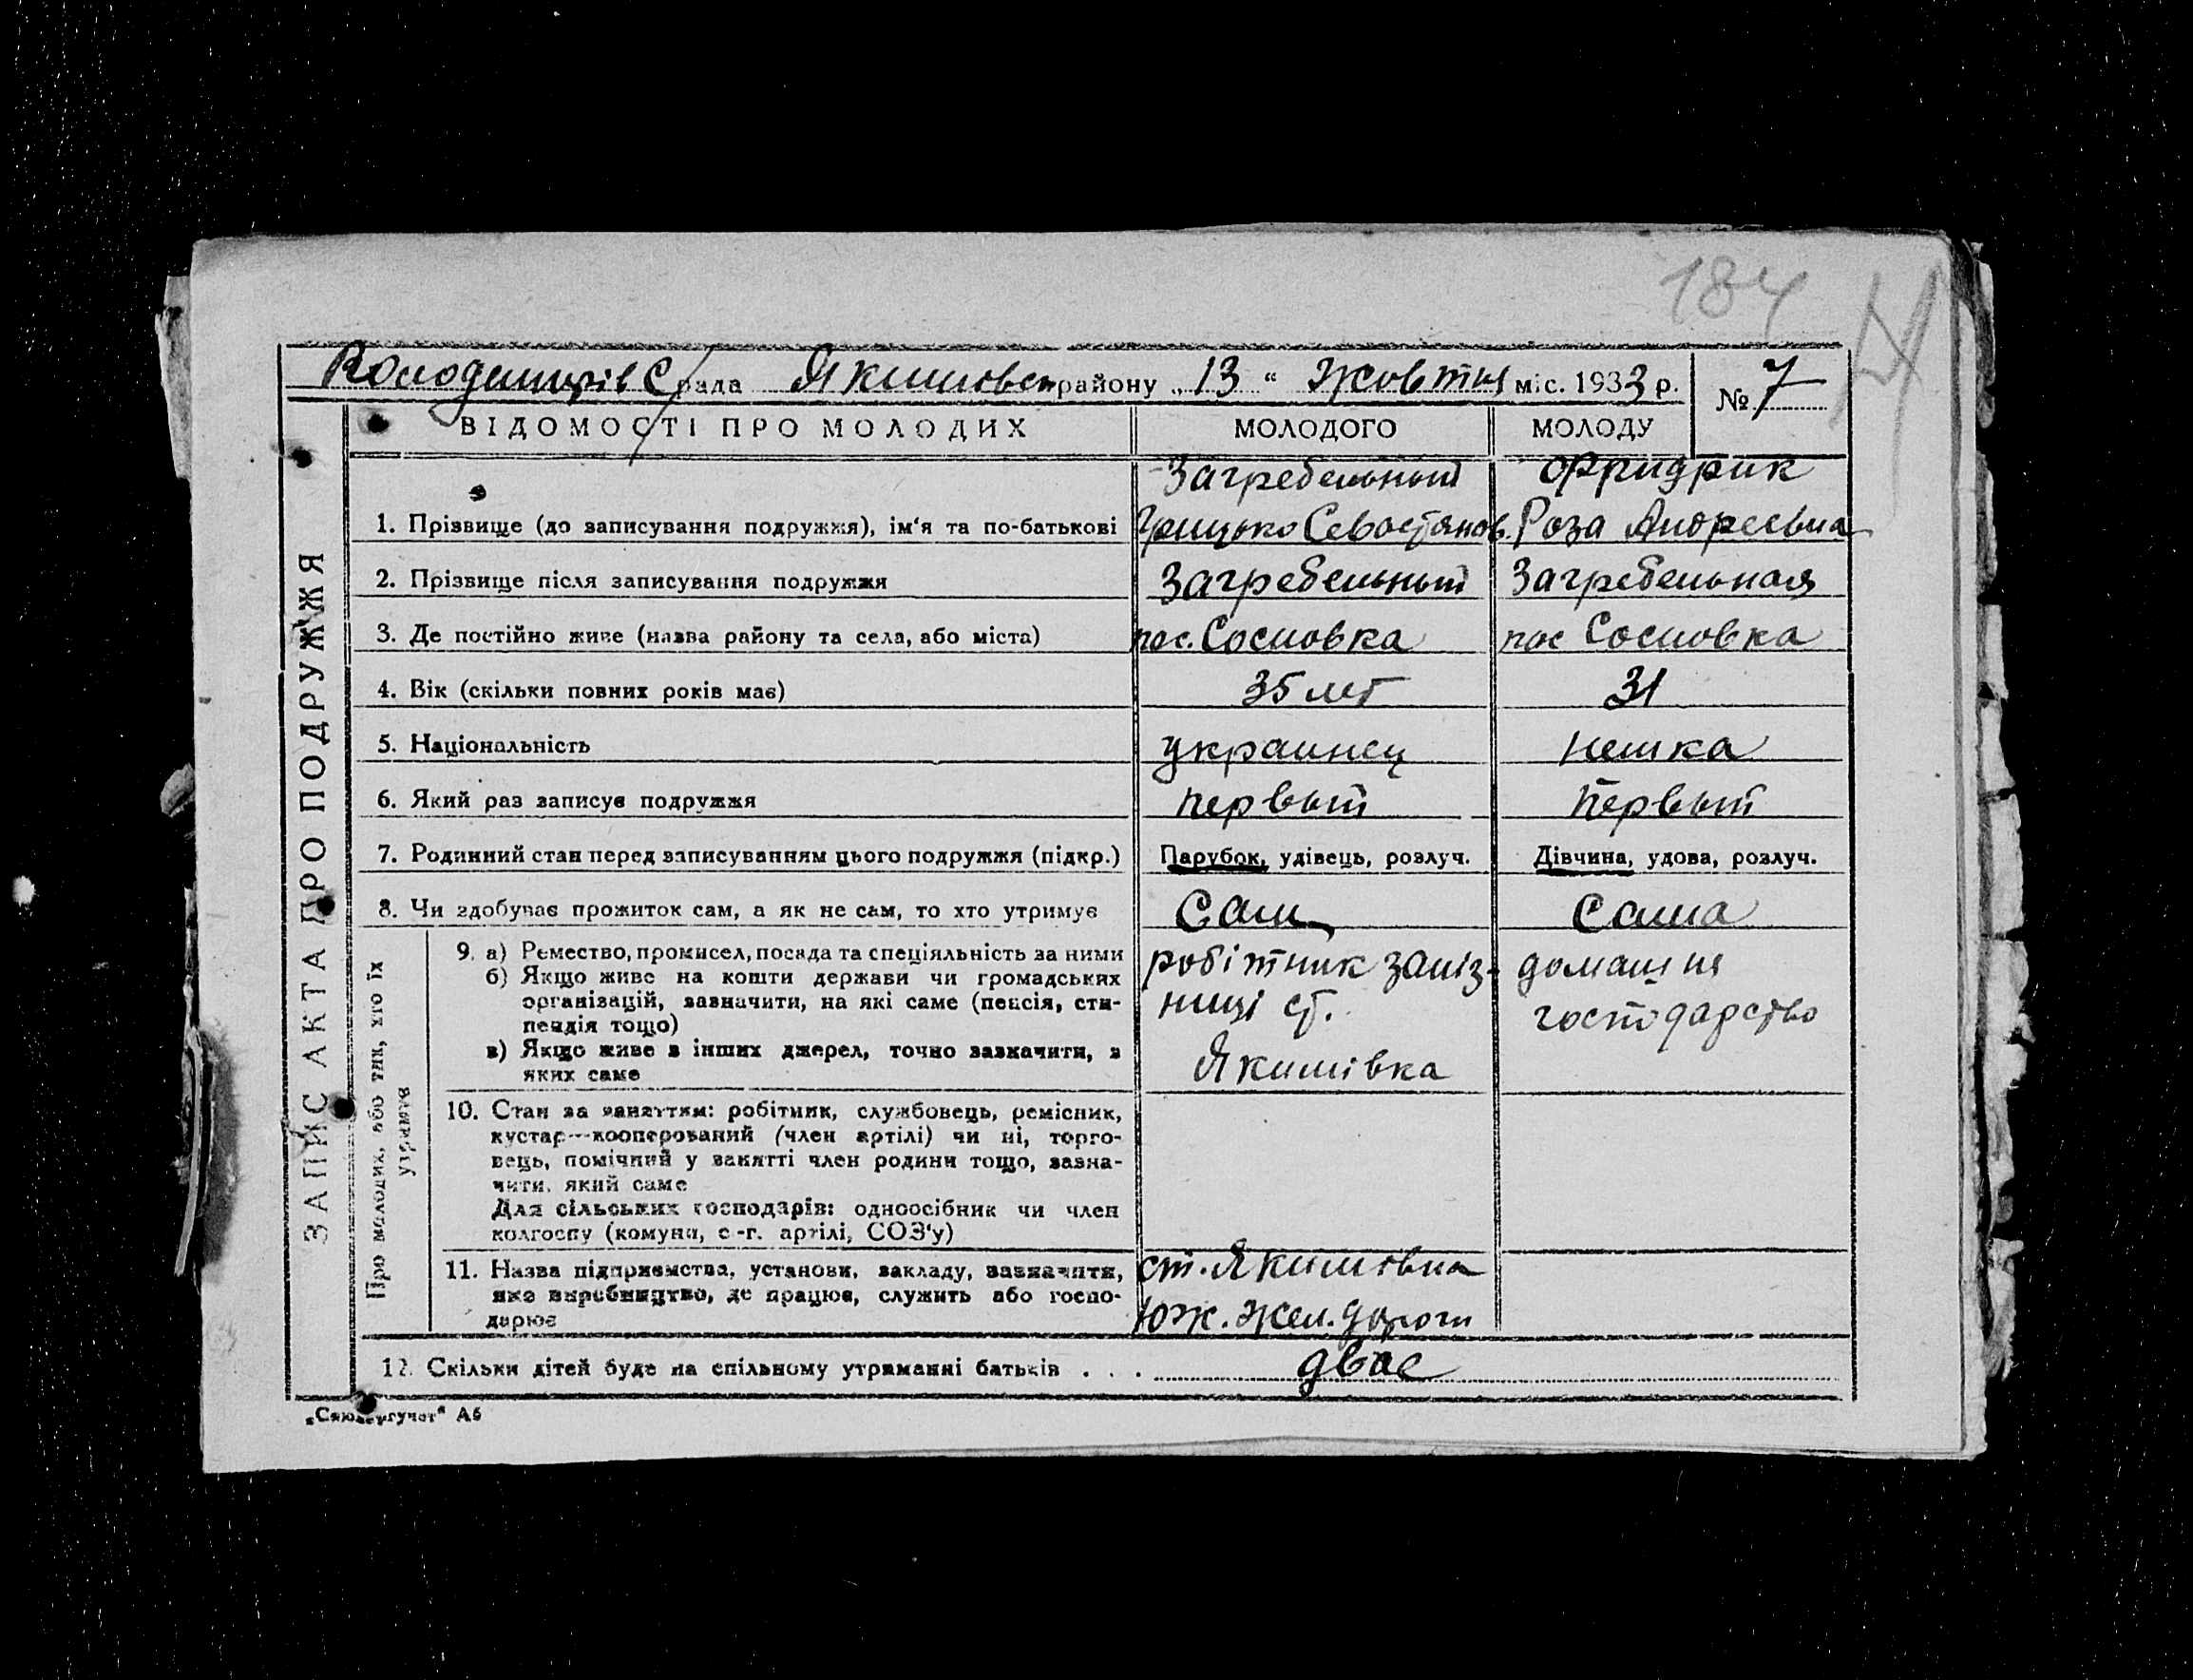 184
Володимирів С/рада Якимовск району „13“ Жовтня міс. 1933 р. № 7
ВІДОМОСТІ ПРО МОЛОДИХ МОЛОДОГО МОЛОДУ
ЗАПИС АКТА ПРО ПОДРУЖЖЯ
Загребельный Фридрик
1. Прізвище (до записування подружжя), ім'я та по-батькові Грицько Севастянов. Роза Андреевна
2. Прізвище після записування подружжя Загребельный Загребельная
3. Де постійно живе (назва району та села, або міста) пос. Сосновка пос Сосновка
4. Вік (скільки повних років має) 35 лет 31
5. Національність украинец немка
6. Який раз записує подружжя первый первый
7. Родинний стан перед записуванням цього подружжя (підкр.) Парубок, удівець, розлуч. Дівчина, удова, розлуч.
8. Чи здобуває прожиток сам, а як не сам, то хто утримує Сам Сама
Про молодих, або тих, хто їх утримує
9. а) Ремество, промисел, посада та спеціяльність за ними робітник заліз- домашня
б) Якщо живе на кошти держави чи громадських
організацій, зазначити, на які саме (пенсія, сти- ниці ст. господарство
пендія тощо)
в) Якщо живе з інших джерел, точно зазначити, з Якимівка
яких саме
10. Стан за заняттям: робітник, службовець, ремісник,
кустар—кооперований (член артілі) чи ні, торго-
вець, помічний у занятті член родини тощо, зазна-
чити, який саме
Для сільських господарів: одноосібник чи член
колгоспу (комуни, с-г. артілі, СОЗ'у)
11. Назва підприємства, установи, закладу, зазначити, ст. Якимовка
яке виробництво, де працює, служить або госпо- Юж. жел. дороги
дарює
12. Скільки дітей буде на спільному утриманні батьків . . . двое
А6